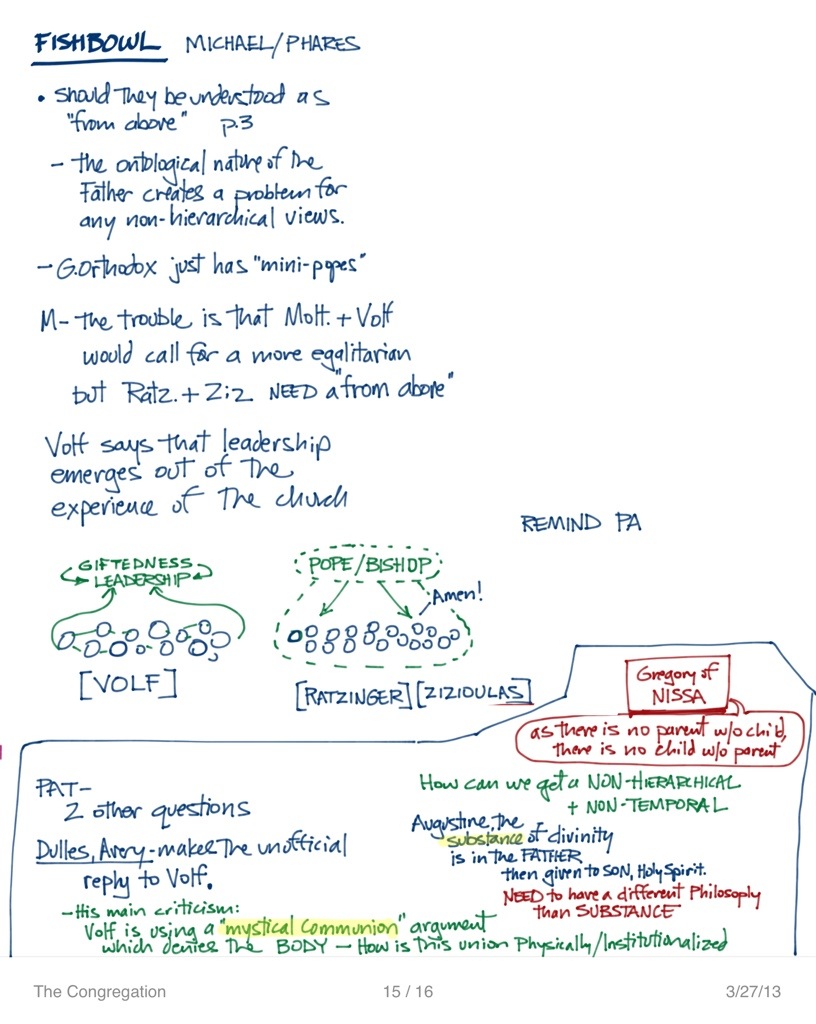 FISHBOWL MICHAEL/PHARES
• Should they be understood as
"from above" p.3
- the ontological nature of the
Father creates a problem for
any non-hierarchical views.
- G.Orthodox just has "mini-popes"
M- the trouble is that Molt. + Volf
would call for a more egalitarian
but Ratz. + Ziz NEED a "from above"
Volf says that leadership
emerges out of the
experience of the church
REMIND PA
GIFTEDNESS
LEADERSHIP
[VOLF]
POPE/BISHOP
Amen!
[RATZINGER] [ZIZIOULAS]
Gregory of
NISSA
as there is no parent w/o child,
there is no child w/o parent
PAT-
2 other questions
Dulles, Avery - makes the unofficial
reply to Volf.
- His main criticism:
Volf is using a "mystical communion" argument
which denies the BODY - How is this union Physically/Institutionalized
How can we get a NON-HIERARCHICAL
+ NON-TEMPORAL
Augustine, the
substance of divinity
is in the FATHER
then given to SON, Holy Spirit.
NEED to have a different Philosoply
than SUBSTANCE
The Congregation 15 / 16 3/27/13